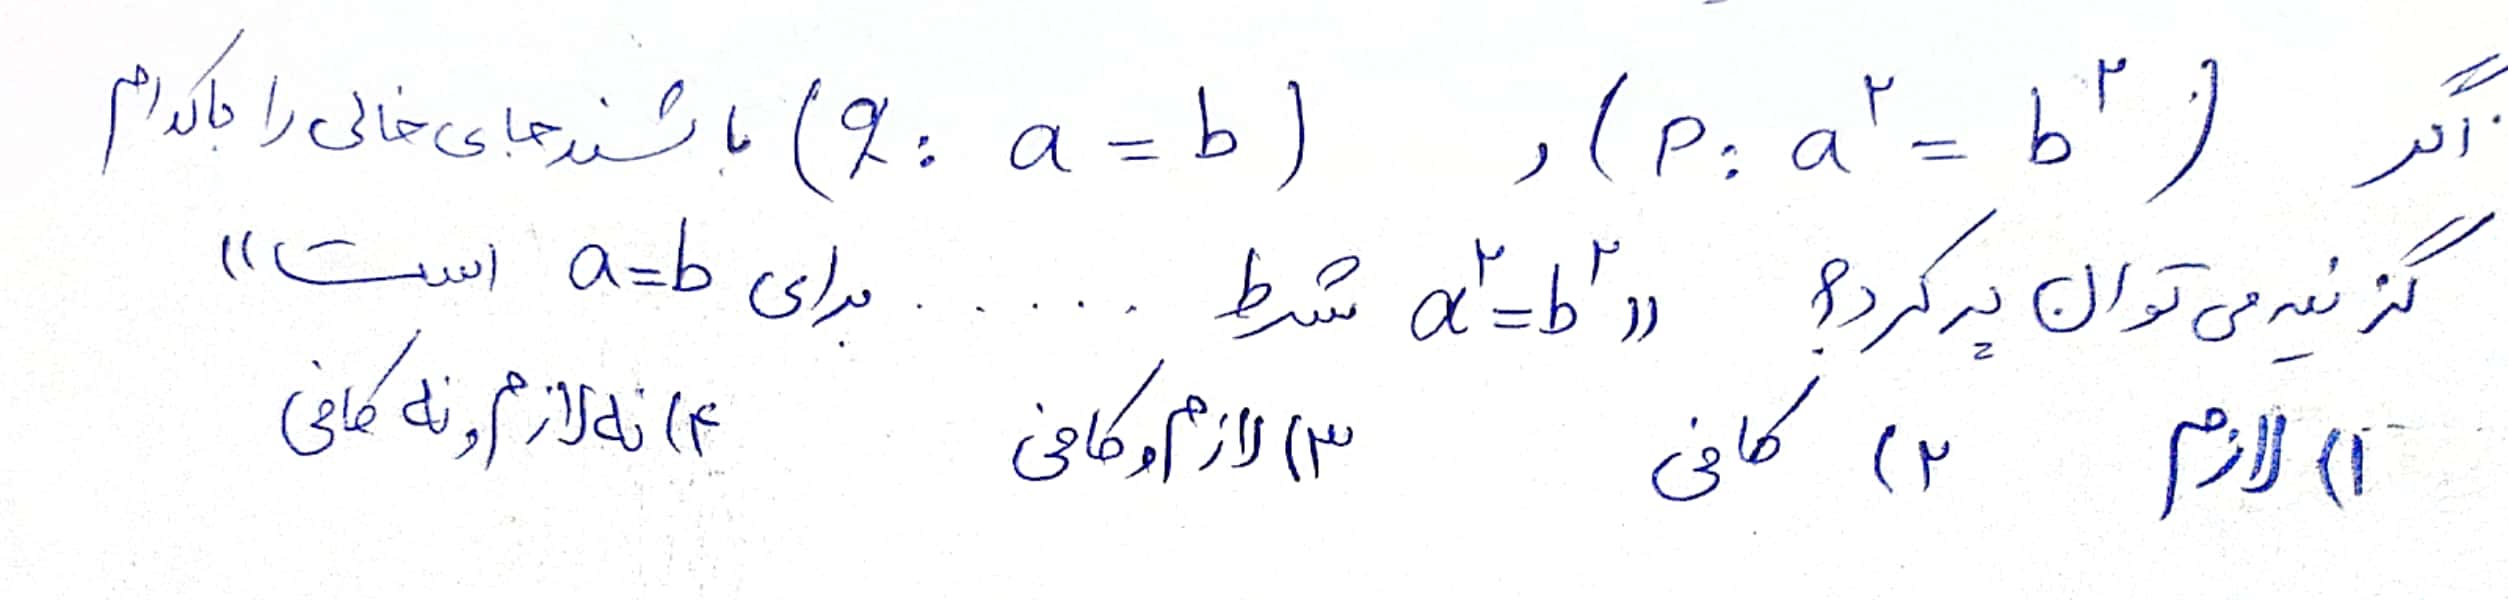 اگر (p: a² = b²) و (q: a = b) باشند جای خالی را با کدام
گزینه می توان پر کرد؟ «a² = b² شرط ..... برای a=b است»
۱) لازم ۲) کافی ۳) لازم و کافی ۴) نه لازم و نه کافی